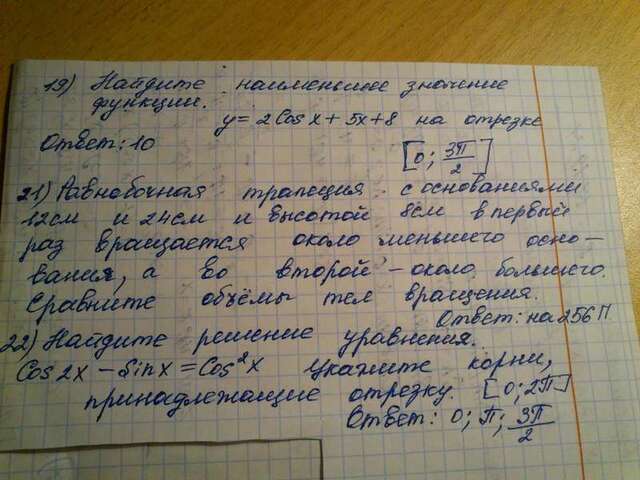 19) Найдите наименьшее значение
функции.
y = 2Cos x + 5x + 8 на отрезке
Ответ: 10 [0; 3П/2]
21) Равнобочная трапеция с основаниями
12см и 24см и высотой 8см в первый
раз вращается около меньшего осно-
вания, а во второй - около большего.
Сравните объёмы тел вращения.
Ответ: на 256П
22) Найдите решение уравнения.
Cos 2x - Sin x = Cos²x Укажите корни,
принадлежащие отрезку. [0; 2П]
Ответ: 0; П; 3П/2